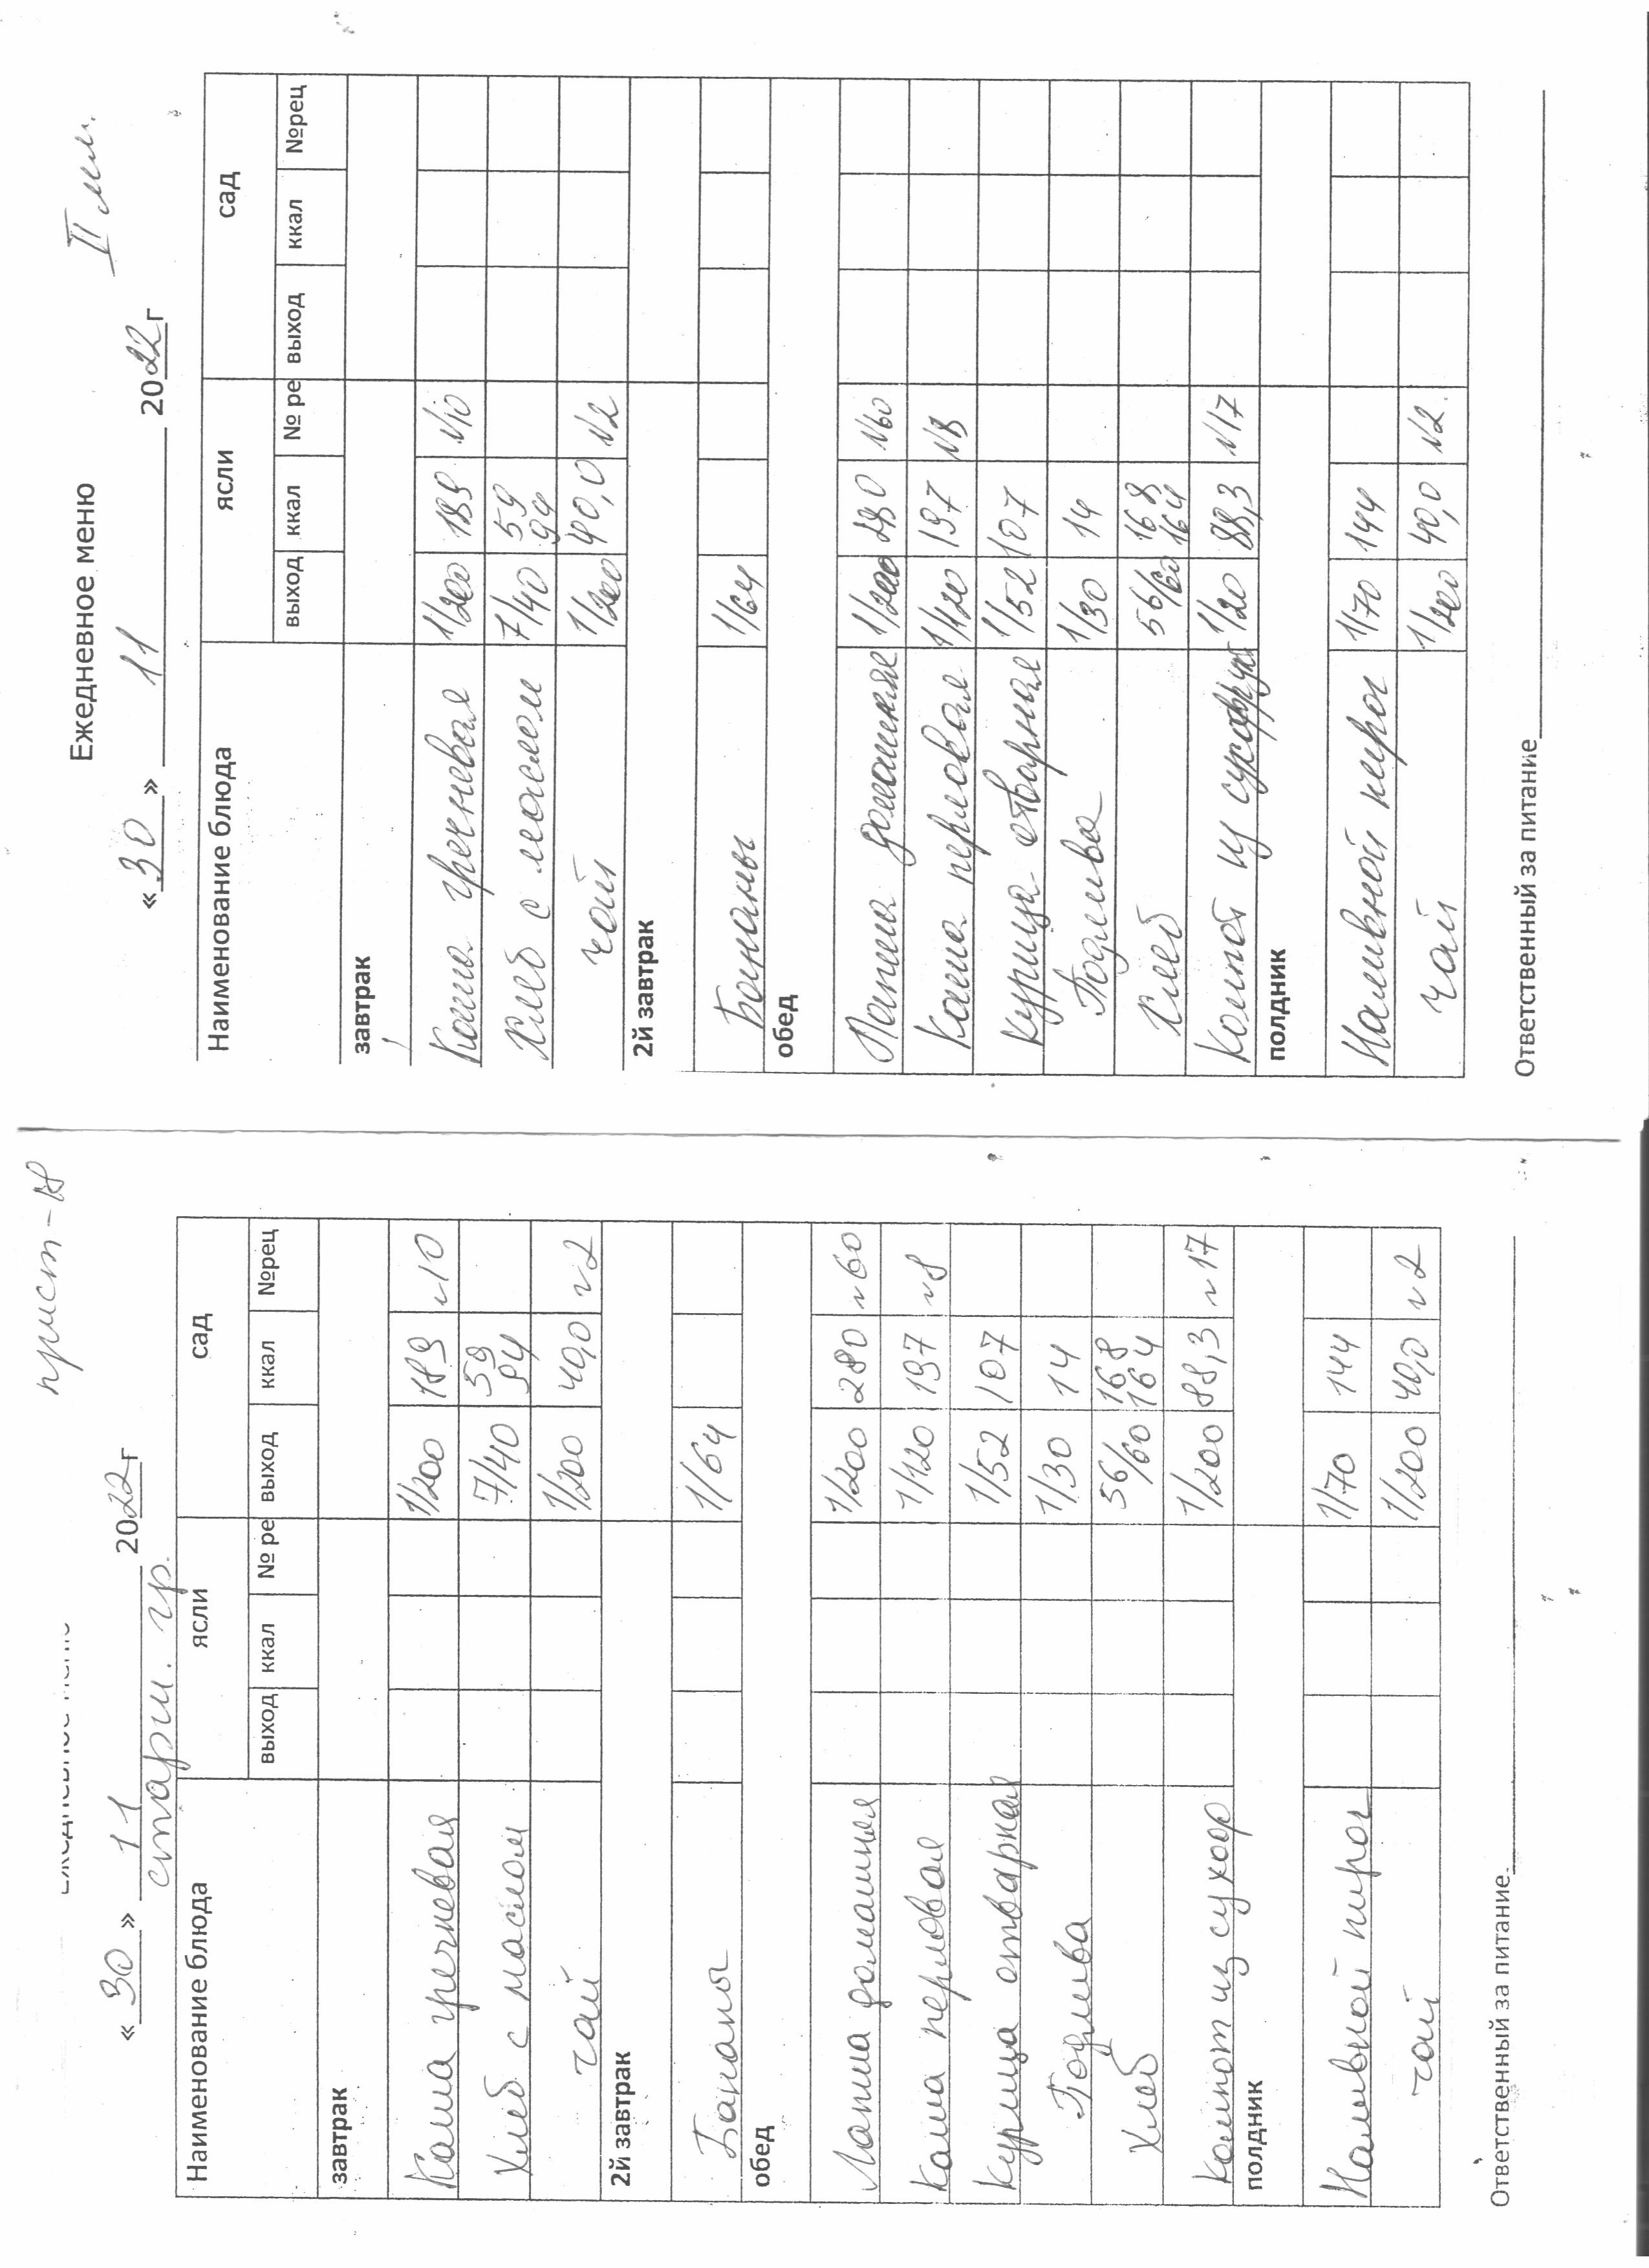 прист-18
Ежедневное меню
«30» 11 2022г
старш. гр.
Наименование блюда ясли сад
выход ккал № ре выход ккал №рец
завтрак
Каша гречневая 1/200 189 №10
Хлеб с маслом 7/40 59 94
чай 1/200 40,0 №2
2й завтрак
Бананы 1/64
обед
Лапша домашняя 1/200 280 №60
Каша перловая 1/120 197 №8
Курица отварная 1/52 107
Подлива 1/30 14
Хлеб 56/60 168 164
Компот из сухоф 1/200 88,3 №17
полдник
Наливной пирог 1/70 144
чай 1/200 40,0 №2
Ответственный за питание
Ежедневное меню II мл.
«30» 11 2022г
Наименование блюда ясли сад
выход ккал № ре выход ккал №рец
завтрак
Каша гречневая 1/200 189 №10
Хлеб с маслом 7/40 59 94
чай 1/200 40,0 №2
2й завтрак
Бананы 1/64
обед
Лапша домашняя 1/200 280 №60
Каша перловая 1/120 197 №8
Курица отварная 1/52 107
Подлива 1/30 14
Хлеб 56/60 168 164
Компот из сухофрук 1/20 88,3 №17
полдник
Наливной пирог 1/70 144
чай 1/200 40,0 №2.
Ответственный за питание